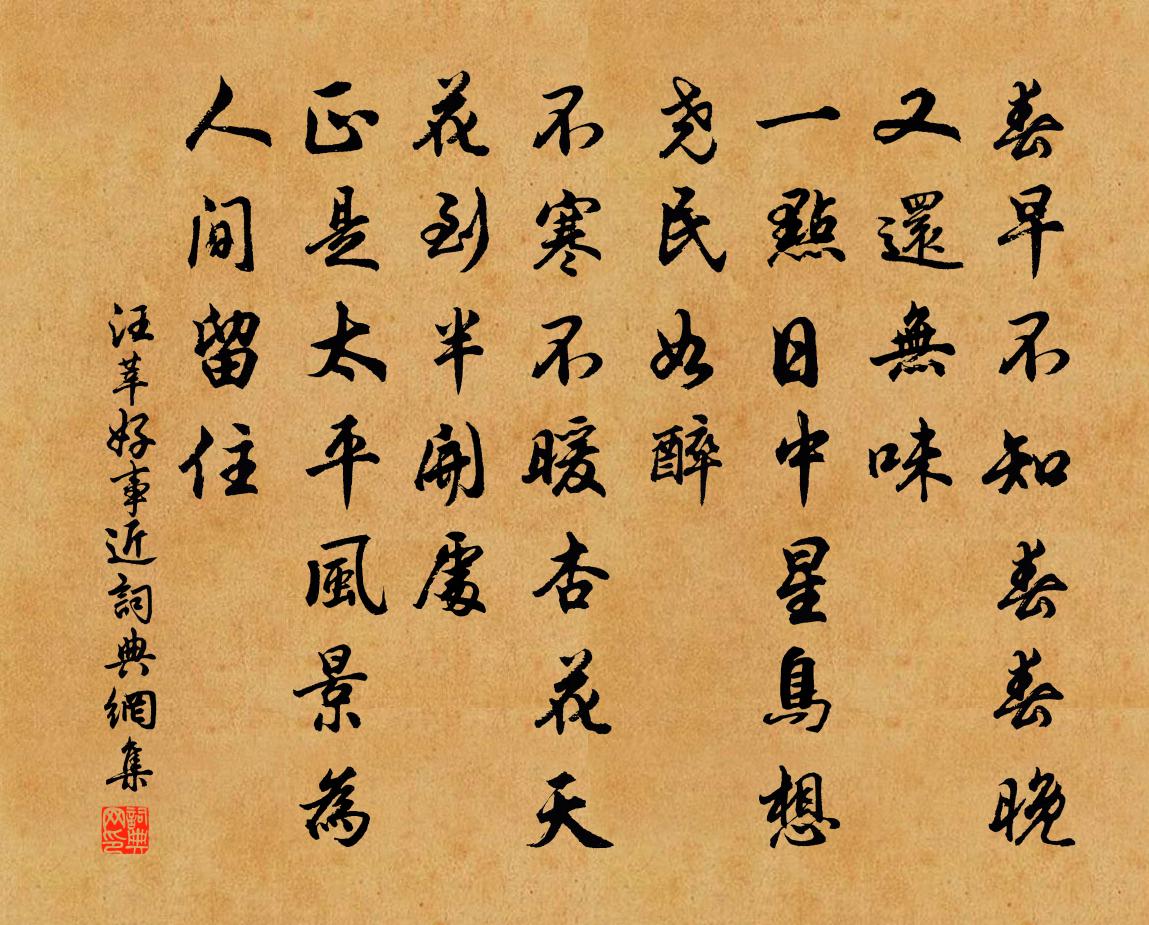 春早不知春春晚
又還無味
一點日中星鳥想
堯民如醉
不寒不暖杏花天
花到半開處
正是太平風景為
人間留住
汪莘好事近詞典網集
詞典
网印